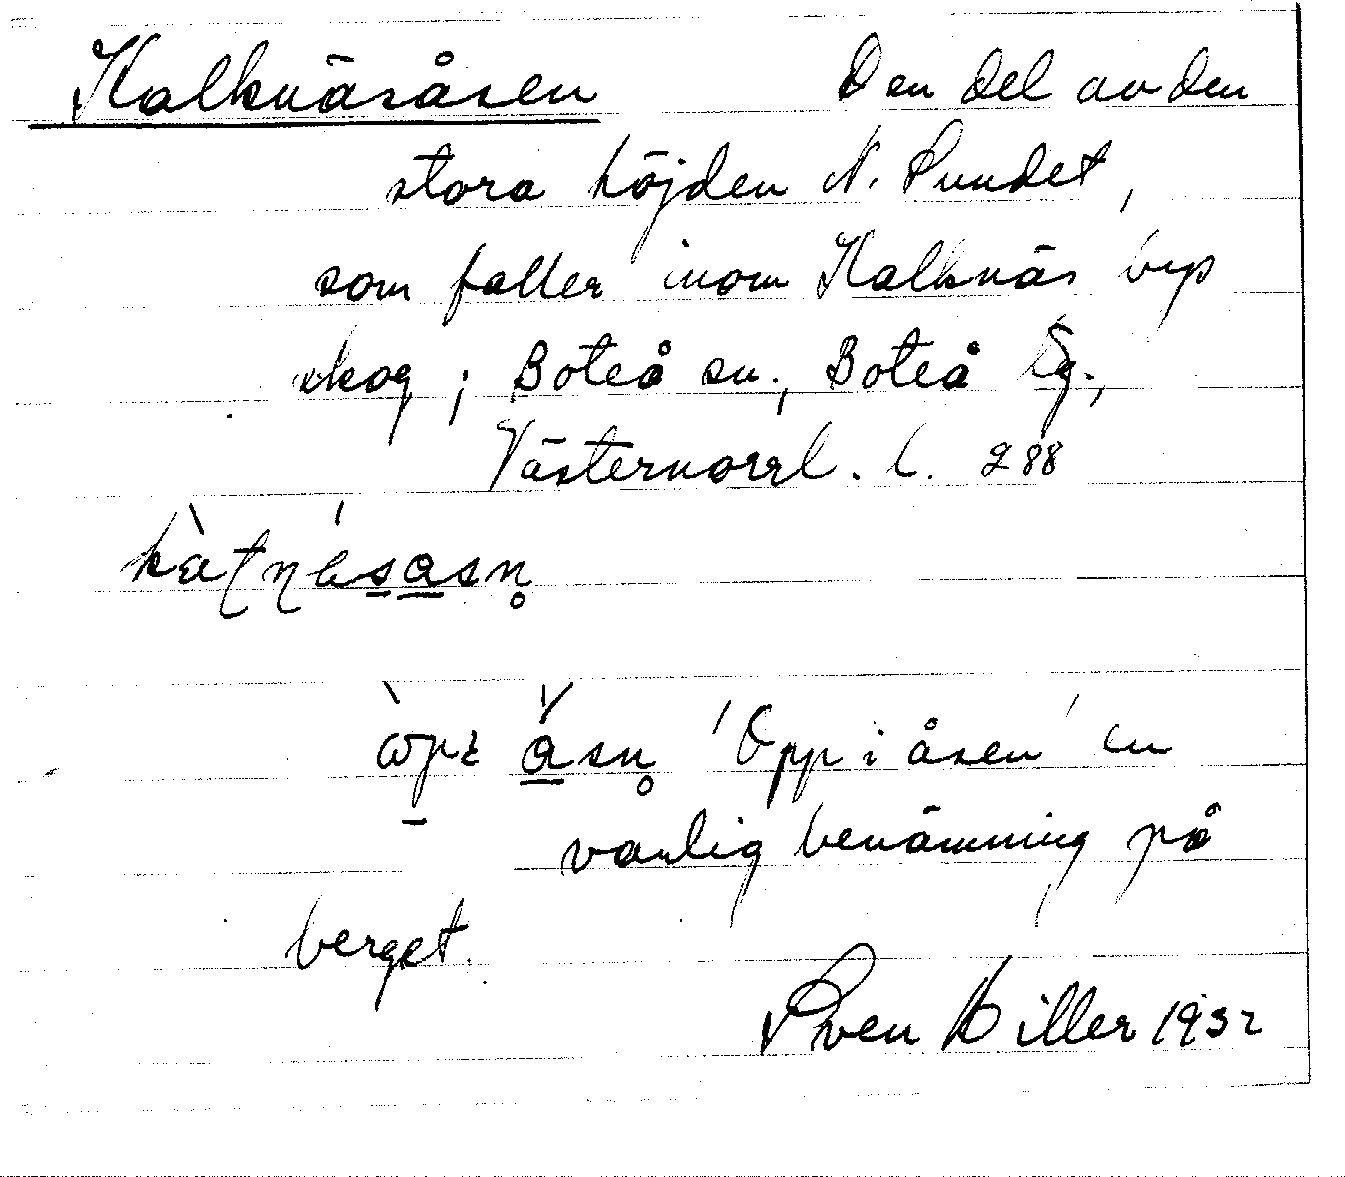 Kalknäsåsen Den del av den
stora höjden N. Sundet,
som faller inom Kalknäs bys
skog; Boteå sn., Boteå tg.,
Västernorrl. l. 288
'Opp i åsen' en
vanlig benämning på
berget.
Sven Hiller 1932